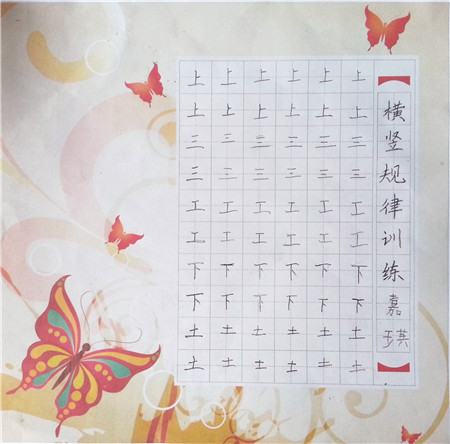 【横竖规律训练嘉琪】
上上三三工工下下土土
上上三三工工下下土土
上上三三工工下下土土
上上三三工工下下土土
上上三三工工下下土土
上上三三工工下下土土